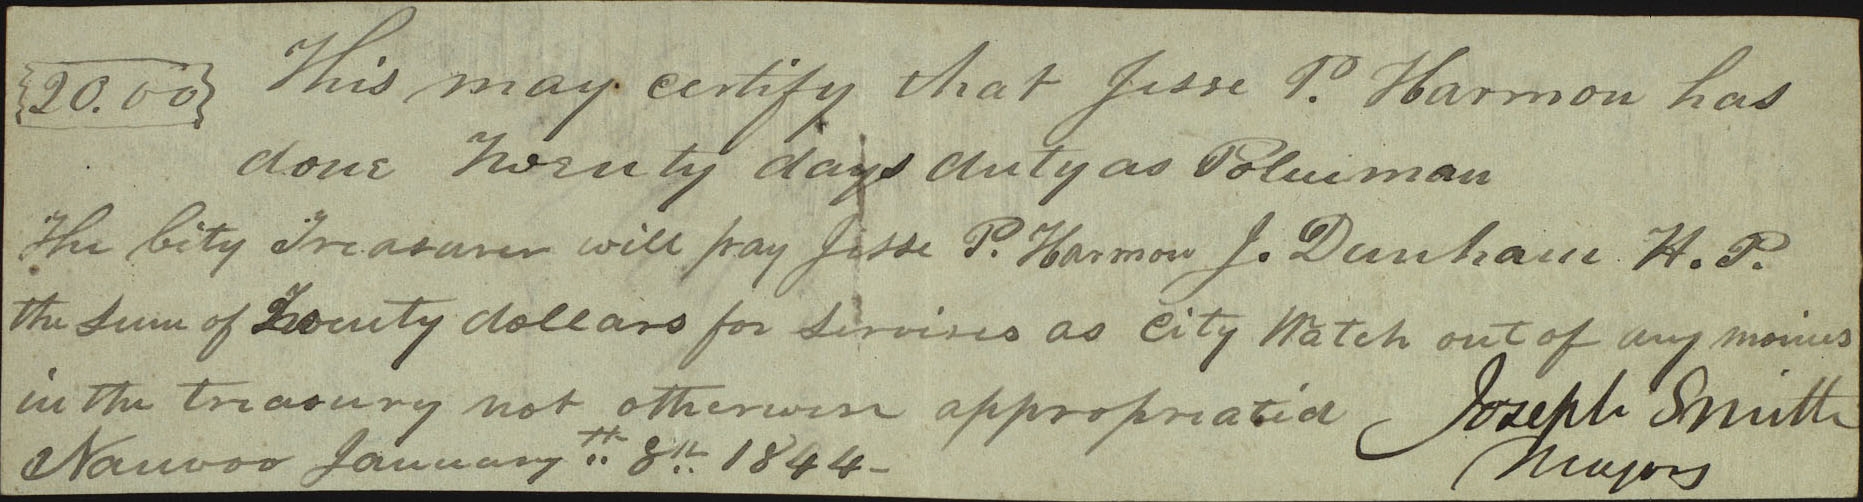 20.00 This may certify that Jesse P. Harmon has
done Twenty days duty as Policiman
The City Treasurer will pay Jesse P. Harmon J. Dunham H. P.
the sum of Twenty dollars for servises as City Watch out of any monies
in the treasury not otherwise appropriated Joseph Smith
Nauvoo January th 8th 1844- Mayor